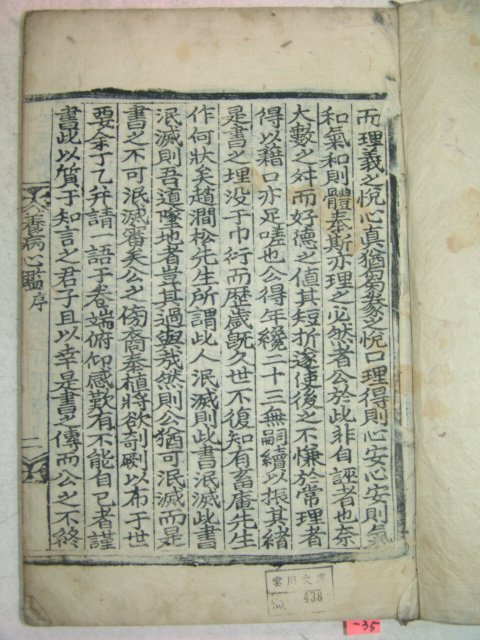 而理義之悅心真猶芻豢之悅口理得則心安心安則氣
和氣和則體泰斯亦理之必然者公於此非自誣者也奈
大數之舛而好德之值其短折遂使後之不慊於常理者
得以藉口亦足嗟也公得年纔二十三無嗣續以振其緒
是書之埋沒于巾衍而歷歲旣久世不復知有畜庵先生
作何狀矣趙澗松先生所謂此人泯滅則此書泯滅此書
泯滅則吾道墜地者豈其過與哉然則公猶可泯滅而是
書之不可泯滅審矣公之傍裔泰植將欲剞劂以布于世
要余丁乙幷請語于卷端俯仰感歎有不能自已者謹
書此以質于知言之君子且以幸是書之傳而公之不終
養病心鑑序
二
438
-35